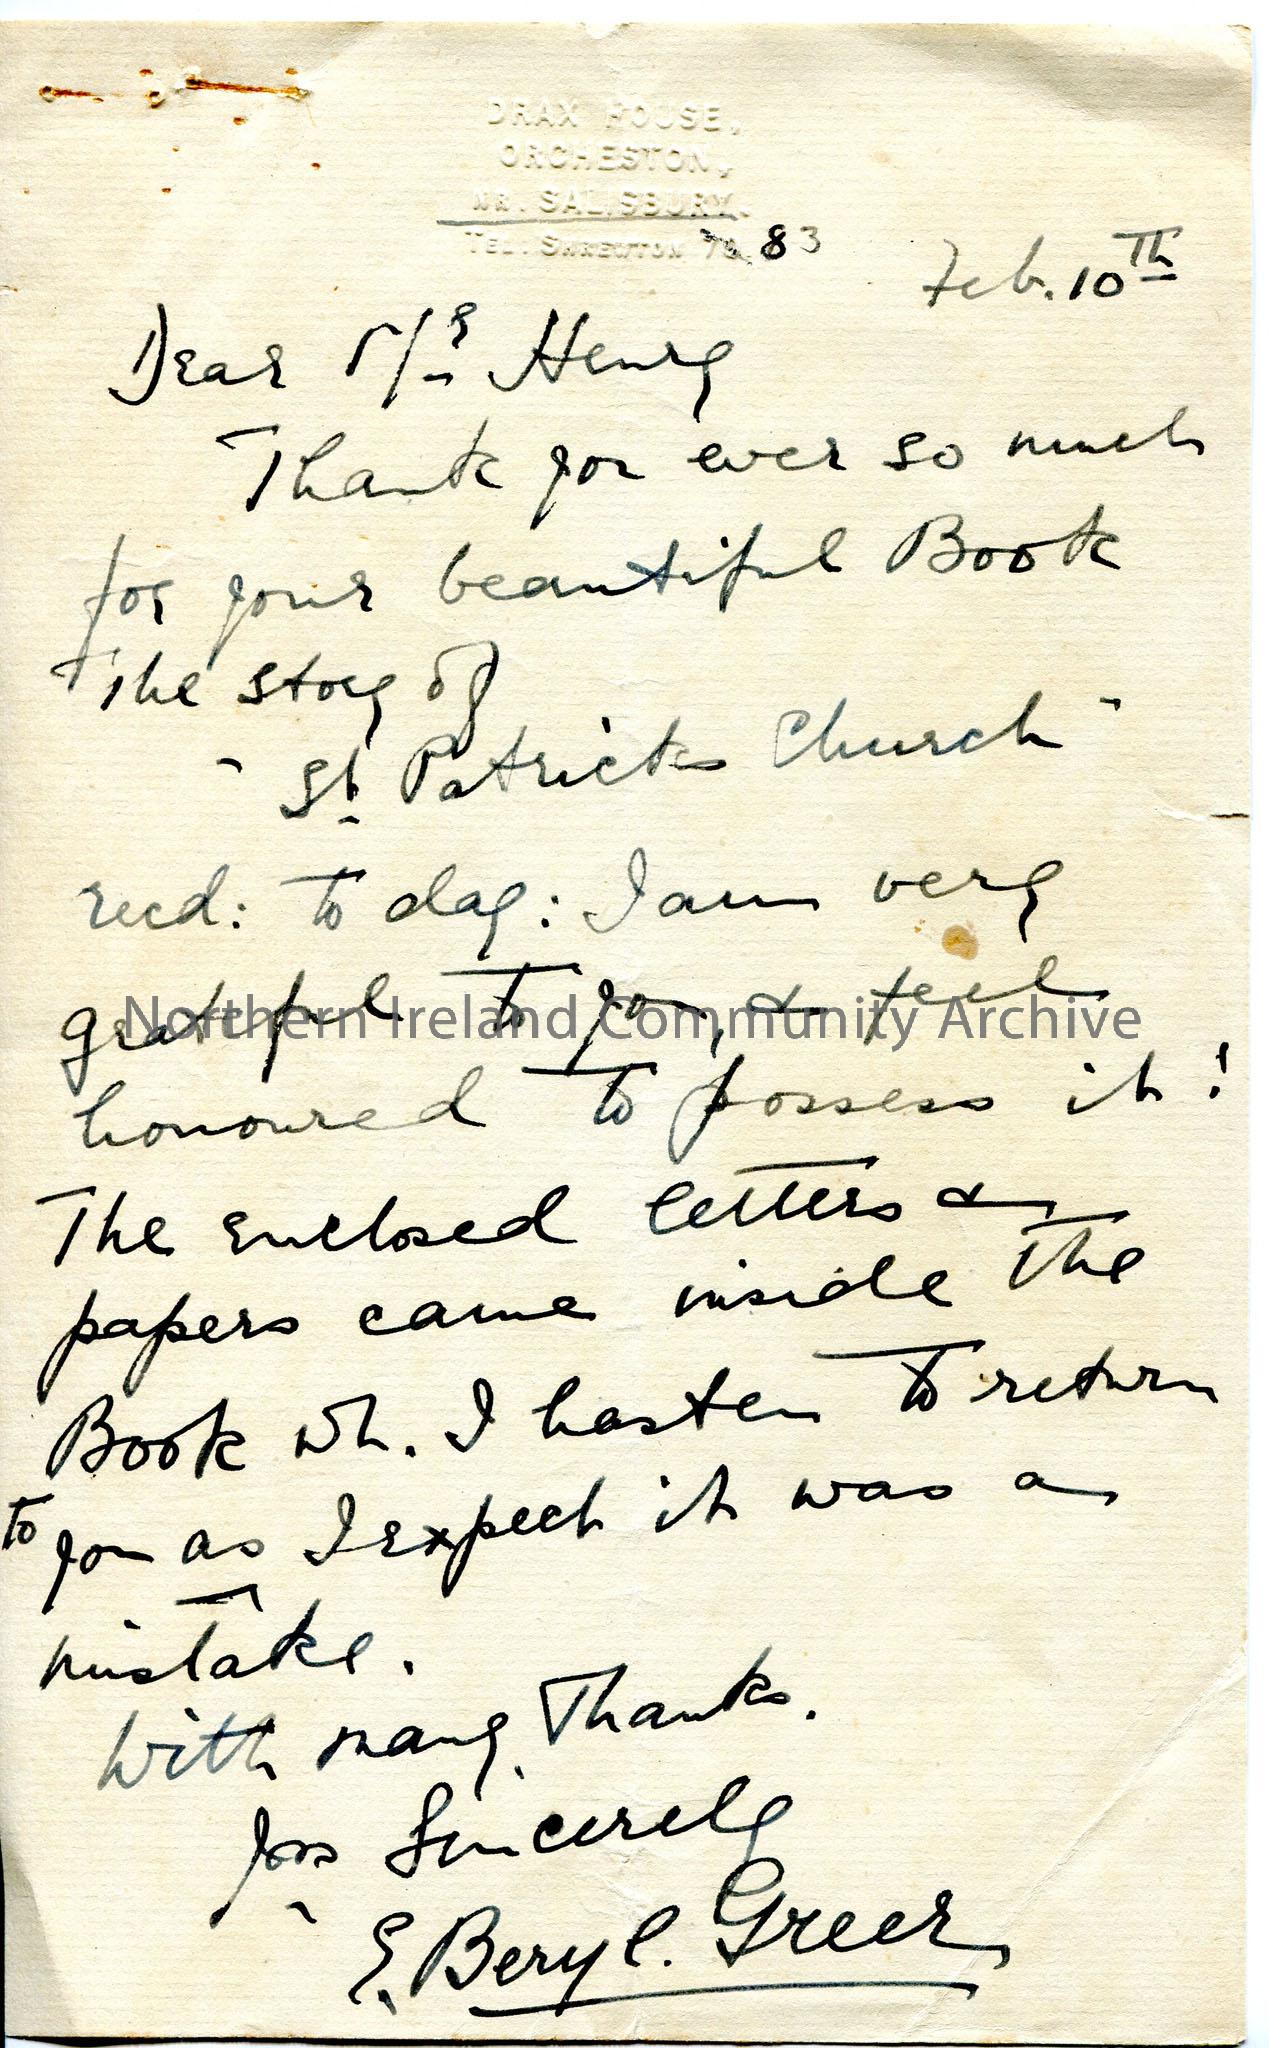 DRAX HOUSE,
ORCHESTON,
NR. SALISBURY.
TEL. SHREWTON 78. 83
Feb. 10th
Dear Mr Henry
Thank you ever so much
for your beautiful Book
"The story of
"St. Patricks Church"
recd: to day: I am very
grateful to you, & feel
honoured to possess it!
The enclosed letters &
papers came inside the
Book wh. I hasten to return
to you as I expect it was a
mistake.
With many Thanks.
Yrs Sincerely
E. Beryl. Greer
Northern Ireland Community Archive